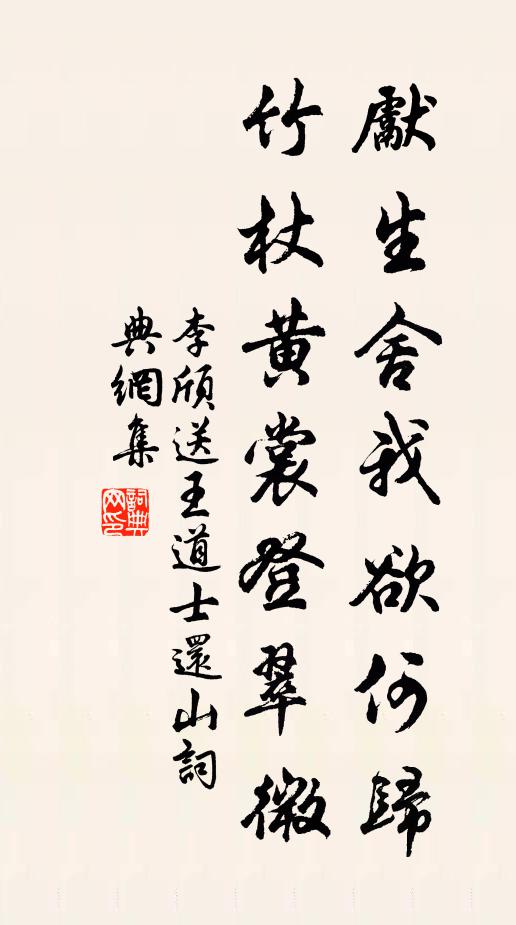 獻生舍我欲何歸
竹杖黃裳登翠微
李頎送王道士還山詞
典網集
詞典
网印